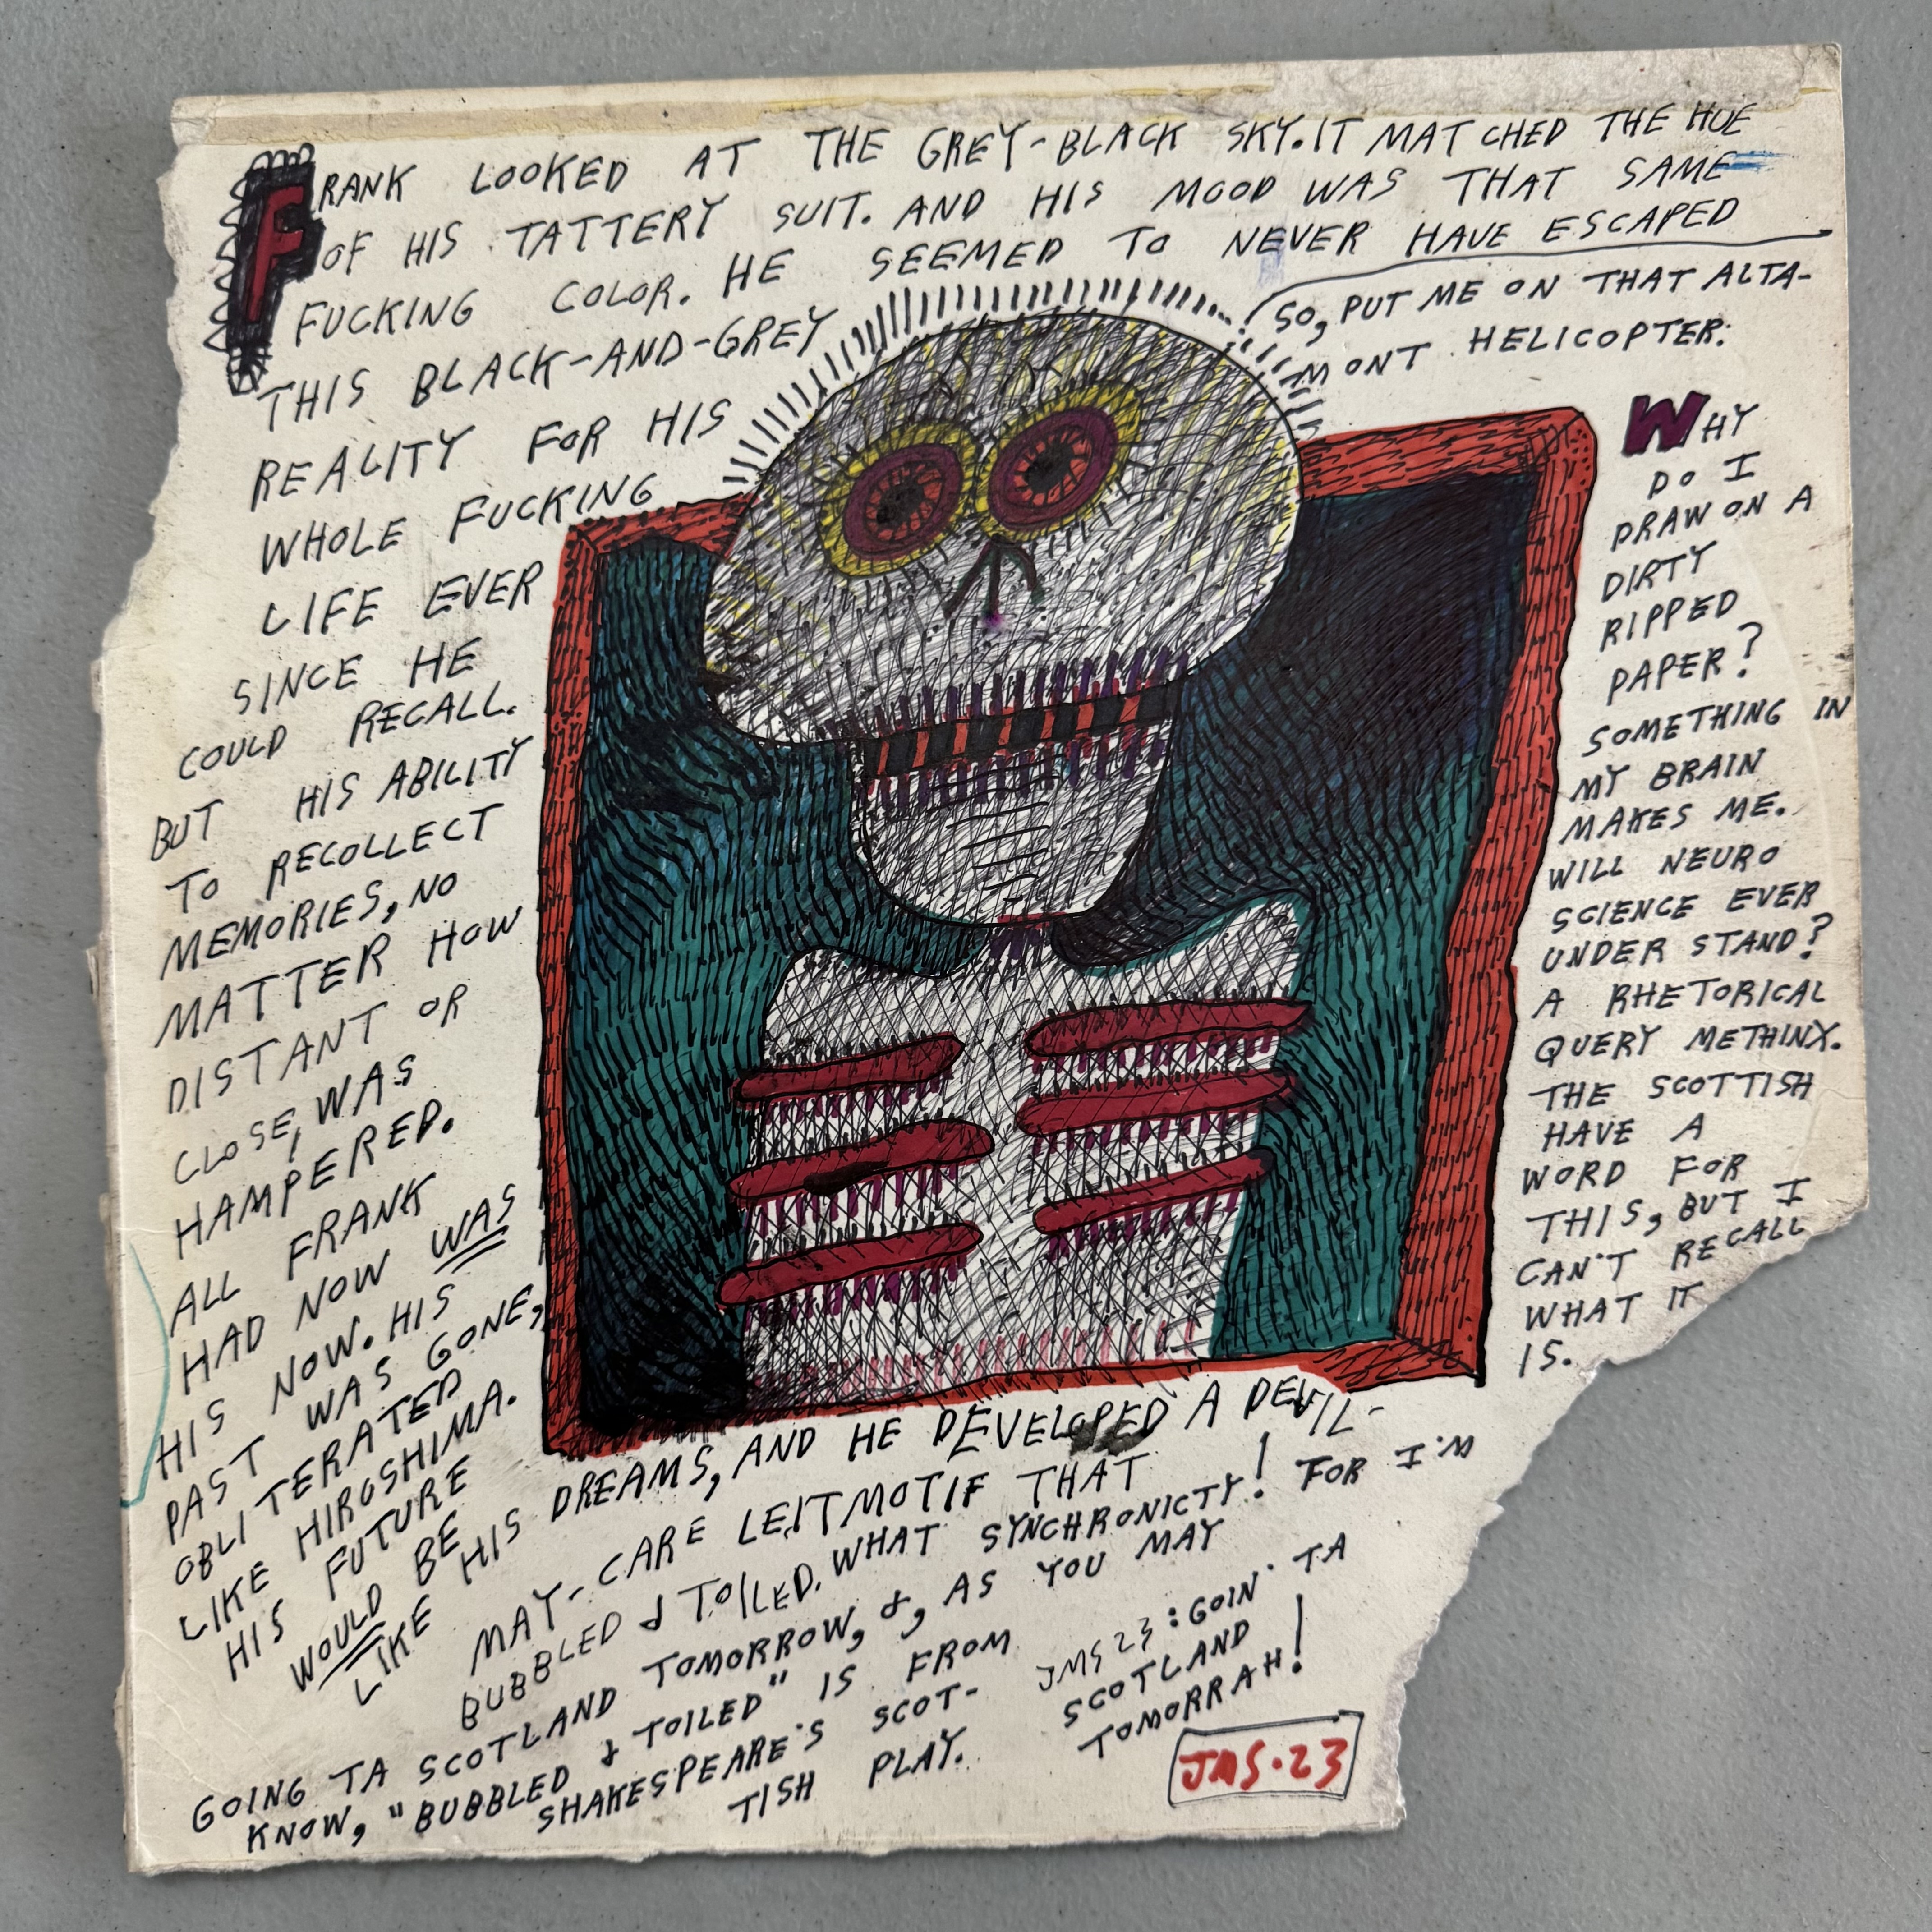 FRANK LOOKED AT THE GREY-BLACK SKY. IT MATCHED THE HUE
OF HIS TATTERY SUIT. AND HIS MOOD WAS THAT SAME
FUCKING COLOR. HE SEEMED TO NEVER HAVE ESCAPED
THIS BLACK-AND-GREY
REALITY FOR HIS
WHOLE FUCKING
LIFE EVER
SINCE HE
COULD RECALL.
BUT HIS ABILITY
TO RECOLLECT
MEMORIES, NO
MATTER HOW
DISTANT OR
CLOSE, WAS
HAMPERED.
ALL FRANK
HAD NOW WAS
HIS NOW. HIS
PAST WAS GONE,
OBLITERATED
LIKE HIROSHIMA.
HIS FUTURE
WOULD BE
LIKE HIS DREAMS, AND HE DEVELOPED A DEVIL-
MAY-CARE LEITMOTIF THAT
BUBBLED & TOILED. WHAT SYNCHRONICTY! FOR I'M
GOING TA SCOTLAND TOMORROW, &, AS YOU MAY
KNOW, "BUBBLED & TOILED" IS FROM
SHAKESPEARE'S SCOT-
TISH PLAY.
SO, PUT ME ON THAT ALTA-
MONT HELICOPTER.
WHY
DO I
DRAW ON A
DIRTY
RIPPED
PAPER?
SOMETHING IN
MY BRAIN
MAKES ME.
WILL NEURO
SCIENCE EVER
UNDER STAND?
A RHETORICAL
QUERY METHINX.
THE SCOTTISH
HAVE A
WORD FOR
THIS, BUT I
CAN'T RECALL
WHAT IT
IS.
JMS 23: GOIN' TA
SCOTLAND
TOMORRAH!
JMS·23